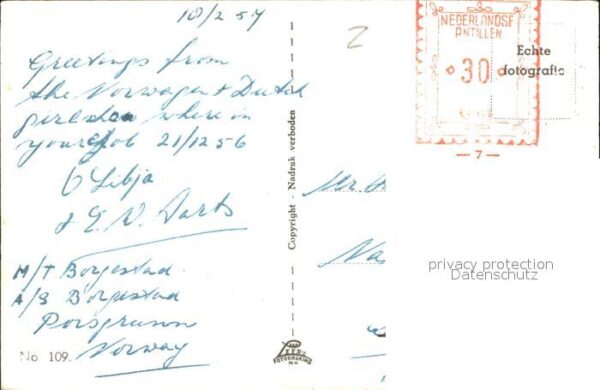 10/2 57
Greetings from
the Norwagen + Dutch
where in
your 21/12 56
Libja
+ E. N. Aarts
M/T Borgestad.
A/S Borgestad
Porsgrunn
Norway
No 109.
Copyright - Nadruk verboden
FOTODRUKKERIJ
N.V.
2
NEDERLANDSE
ANTILLEN
30
Echte
fotografie
— 7 —
Mr
privacy protection
Datenschutz